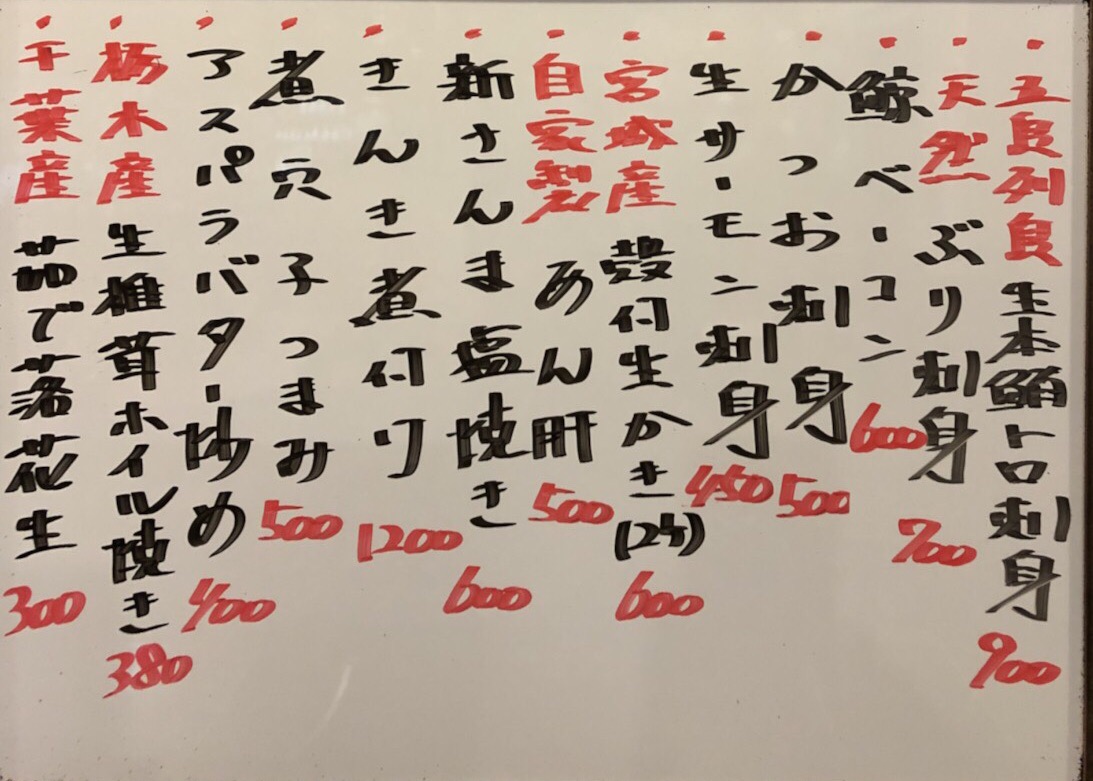 ・五島列島 生本鮪トロ刺身 900
・天然 ぶり刺身 700
・鯨ベーコン 600
・かつお刺身 500
・生サーモン刺身 450
・宮城産 殻付生かき(2ケ) 600
・自家製 あん肝 500
・新さんま塩焼き 600
・きんき煮付け 1200
・煮穴子つまみ 500
・アスパラバター炒め 400
・栃木産 生椎茸ホイル焼き 380
・千葉産 茹で落花生 300